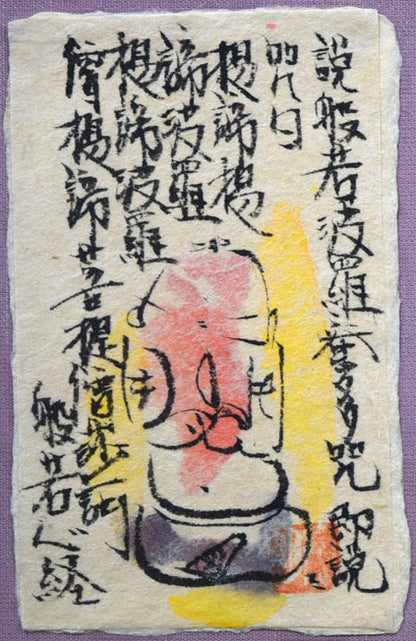 説般若波羅蜜多咒即説
呪曰
揭諦揭
諦波羅
揭諦波羅
僧揭諦菩提僧莎訶
般若心経